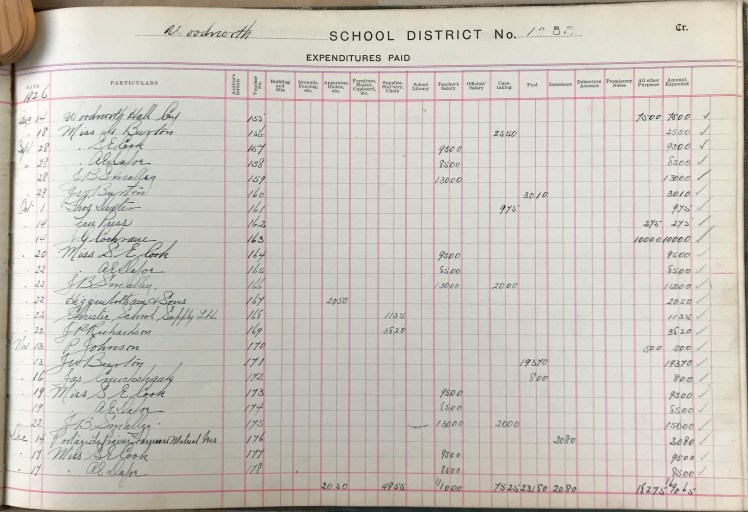 Woodnorth SCHOOL DISTRICT No. Cr.
EXPENDITURES PAID
DATE PARTICULARS Auditor's Initials Voucher No. Building and Site Grounds, Fencing, etc. Apparatus, Globes, etc. Furniture, Stoves, Cupboard, etc. Supplies, Stationery, Chalk School Library Teacher's Salary Officials' Salary Care-taking Fuel Insurance Debenture Account Promissory Notes All other Purposes Amount Expended
1926
14 Woodnorth Hall 155 7500 7500 ✓
18 Miss Burton 156 2550 2550 ✓
Sept 28 " S E Cook 157 9500 9500 ✓
" 28 " 158 8500 8500 ✓
28 J B Smalley 159 13000 13000 ✓
29 Burton 160 3010 3010 ✓
Oct 1 Thos 161 975 975 ✓
14 Press 162 275 275 ✓
14 Cochrane 163 10000 10000 ✓
20 Miss S E Cook 164 9500 9500 ✓
22 165 8500 8500 ✓
22 J B Smalley 166 13000 2000 15000 ✓
22 Higginbotham & Sons 167 2050 2050 ✓
22 Christie School Supply Ltd 168 1135 1135 ✓
22 J R Richardson 169 3820 3820 ✓
Nov 13 P Johnson 170 500 500 ✓
13 Burton 171 19370 19370 ✓
16 Jas 172 800 800 ✓
19 Miss S E Cook 173 9500 9500 ✓
19 174 8500 8500 ✓
22 J B Smalley 175 13000 2000 15000 ✓
Dec 14 Portage Prairie Farmers Mutual Ins 176 2080 2080 ✓
17 Miss S E Cook 177 9500 9500 ✓
17 178 8500 8500 ✓
2050 4955 7525 23180 2080 18275